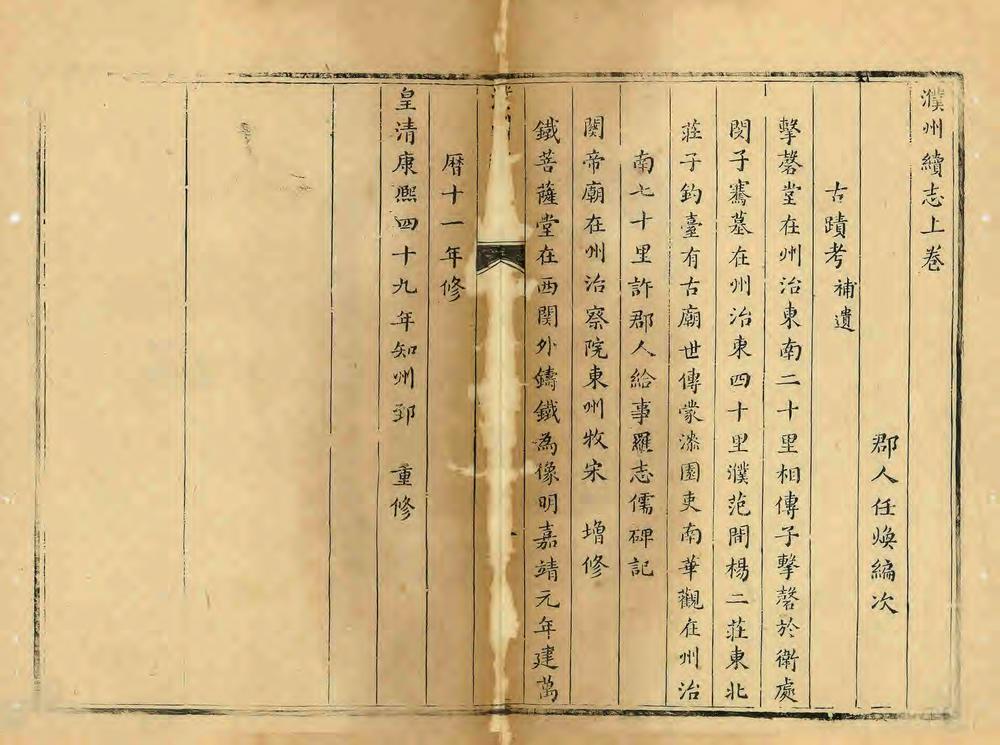 濮州續志上卷
郡人任煥編次
古蹟考補遺
擊磬堂在州治東南二十里相傳子擊磬於衛處
閔子騫墓在州治東四十里濮范間楊二莊東北
莊子釣臺有古廟世傳蒙漆園吏南華觀在州治
南七十里許郡人給事羅志儒碑記
關帝廟在州治察院東州牧宋 增修
鐵菩薩堂在西関外鑄鐵為像明嘉靖元年建萬
曆十一年修
皇清康熙四十九年知州郅 重修